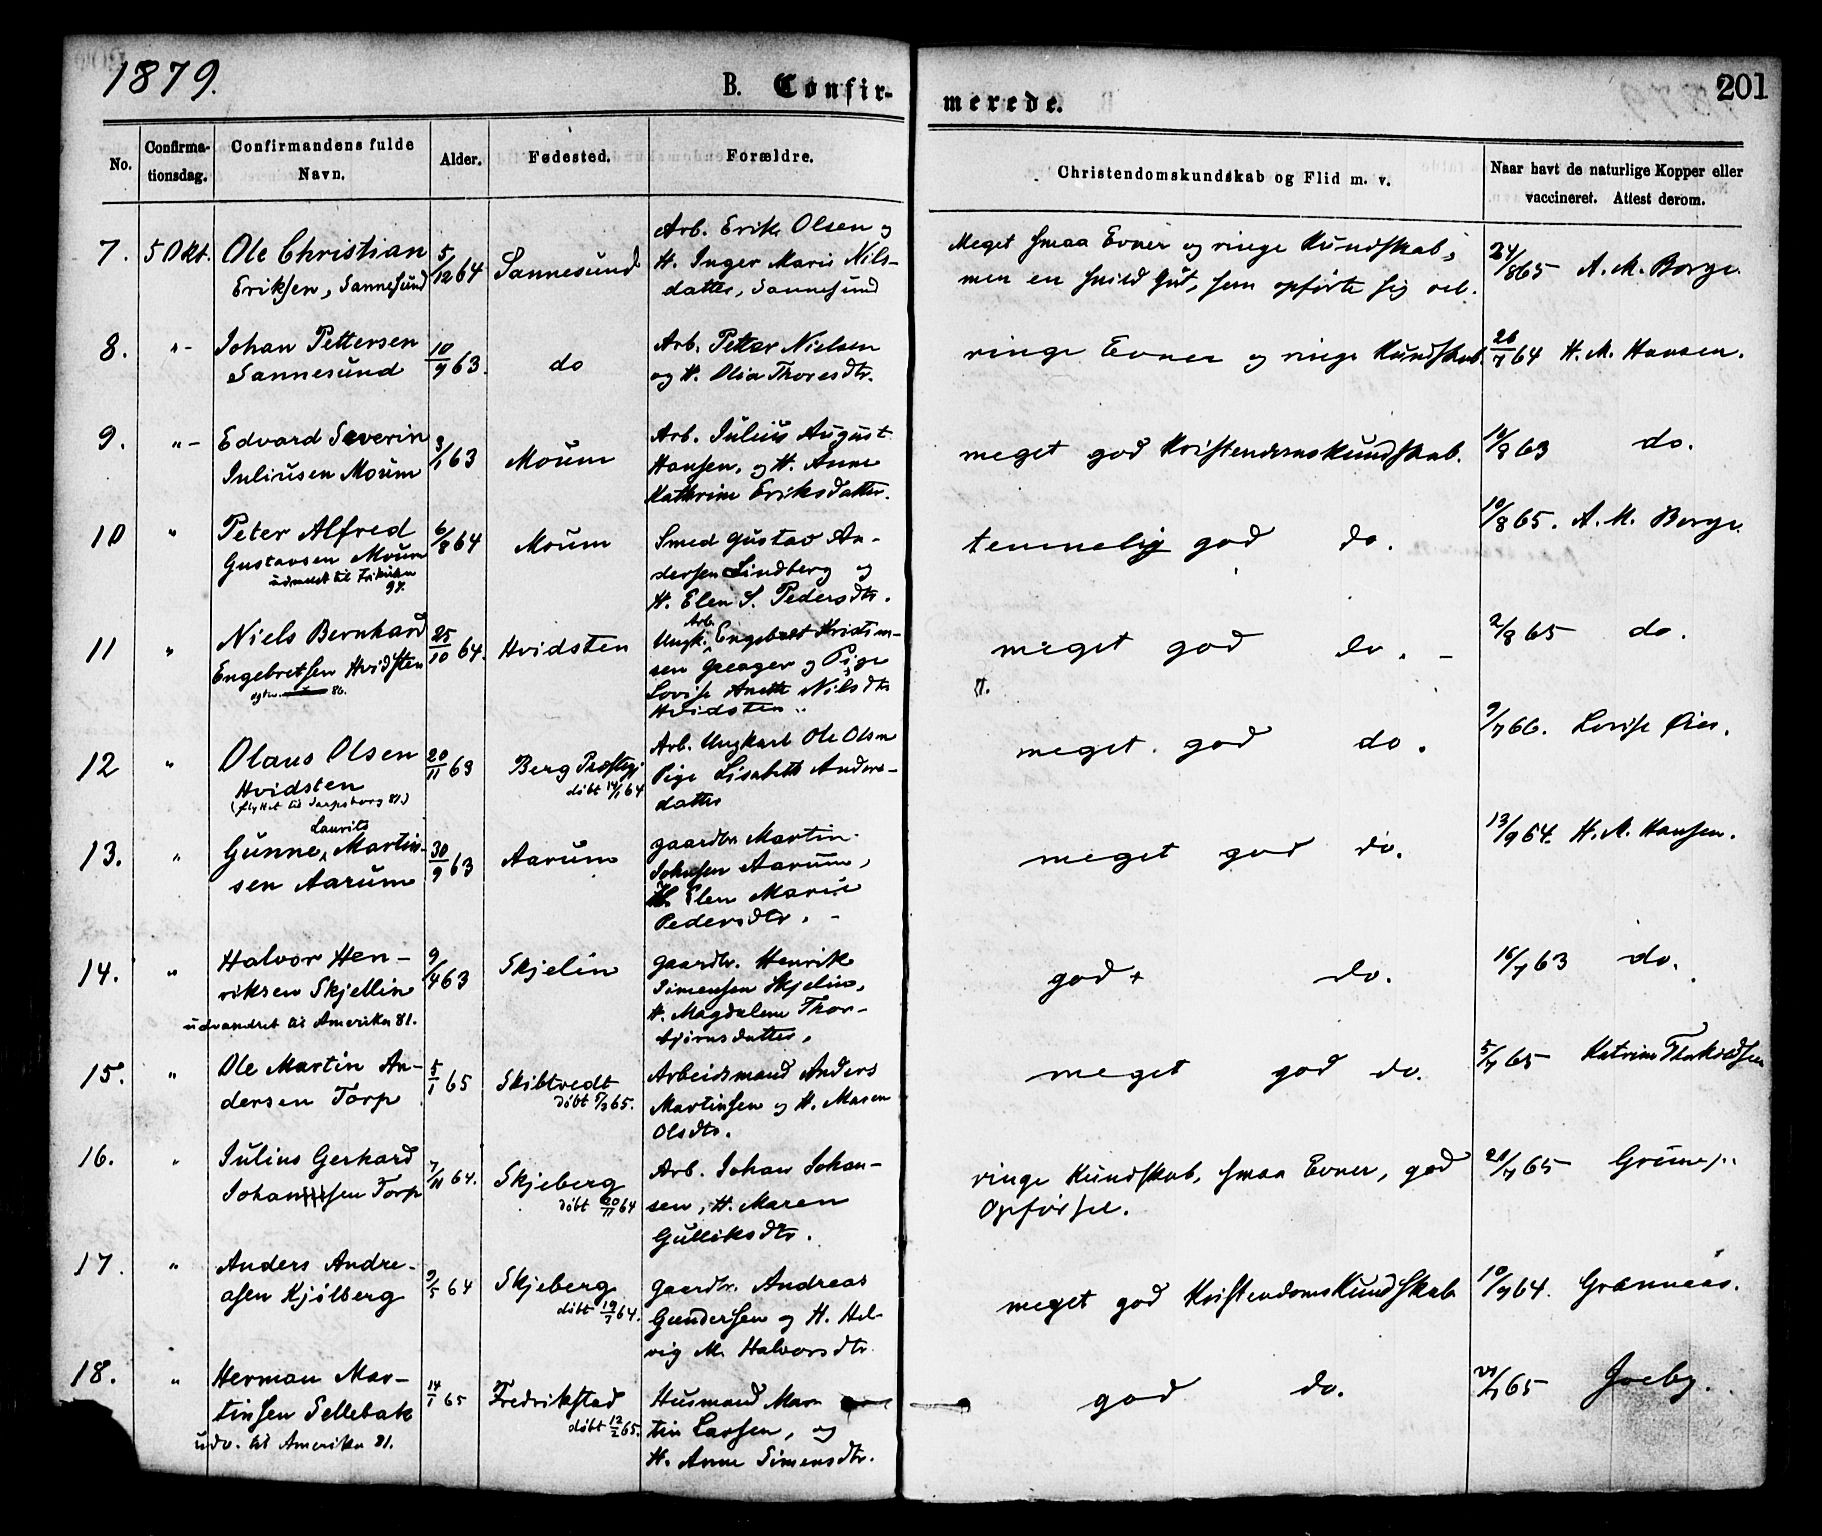 1879.
B. Confir-
merede.
201
No.
Confirma-
tionsdag.
Confirmandens fulde
Navn.
Alder.
Fødested.
Forældre.
Christendomskundskab og Flid m. v.
Naar havt de naturlige Kopper eller
vaccineret. Attest derom.
7. 5 Okt. Ole Christian
Eriksen, Sannesund
5/12 64 Sannesund
Arb. Erik Olsen og
H. Inger Marie Nils-
datter, Sannesund
Meget smaa Evner og ringe Kundskab,
men en snild Gut, som opførte sig vel.
24/8 65 A. M. Borge.
8. "- Johan Pettersen
Sannesund
10/9 63. do
Arb. Petter Nielsen
og H. Olia Thoresdtr.
ringe Evner og ringe Kundskab.
26/7 64 H. M. Hansen.
9. "- Edvard Severin
Juliusen Moum
3/1 63 Moum
Arb. Julius August
Hansen, og H. Anne
Kathrine Eriksdatter.
meget god Kristendomskundskab.
14/8 63 do.
10 " Peter Alfred
Gustavsen Moum
udmeldt til Frikirken
6/8 64 Moum
Smed Gustav An-
dersen Lindberg og
H. Elen S. Pedersdtr.
temmelig god do.
10/8 65. A. M. Borge.
11 " Niels Bernhard
Engebretsen Hvidsten
86.
25/10 64. Hvidsten
Arb.
Ungk. Engebret Kristen-
sen Greager og Pige
Lovise Anette Nilsdtr
Hvidsten.
meget god do. -
2/8 65 do.
12 " Olaus Olsen
Hvidsten
(flyttet til Sarpsborg 81.)
20/11 63 Berg Præstegj.
døbt 14/1 64
Arb. Ungkarl Ole Olsen
Pige Lisabeth Anders-
datter
meget god do.
9/7 66. Lovise Øier.
Laurits
13. " Gunne, Martin-
sen Aarum
30/9 63 Aarum
gaardbr. Martin
Johnsen Aarum,
H. Elen Marie
Pedersdtr. -
meget god do.
13/9 64. H. M. Hansen.
14. " Halvor Hen-
riksen Skjellin
udvandret til Amerika 81.
9/4 63 Skjelin
gaardbr. Henrik
Simensen Skjelin,
H. Magdalene Thor-
bjørnsdatter.
god + do.
16/7 63 do.
15. " Ole Martin An-
dersen Torp
5/1 65 Skibtvedt
døbt 5/3 65.
Arbeidsmand Anders
Martinsen og H. Maren
Olsdtr.
meget god do.
5/7 65 Katrine Thorkildsen
16. " Julius Gerhard
Johansen Torp
7/11 64. Skjeberg
døbt 20/11 64
Arb. Johan Johan-
sen, H. Maren
Gulliksdtr.
ringe Kundskab, smaa Evner, god
Opførsel.
21/7 65
17. " Anders Andre-
asen Kjølberg
9/5 64 Skjeberg
døbt 19/7 64.
gaardbr. Andreas
Gundersen og H. Hel-
vig M. Halvorsdtr.
meget god Kristendomskundskab
10/9 64. Grannæs.
18. " Herman Mar-
tinsen Sellebak
udv. til Amerika 81.
14/1 65 Fredrikstad
døbt 12/2 65.
Husmand Mar-
tin Larsen, og
H. Anne Simensdtr.
god do.
65